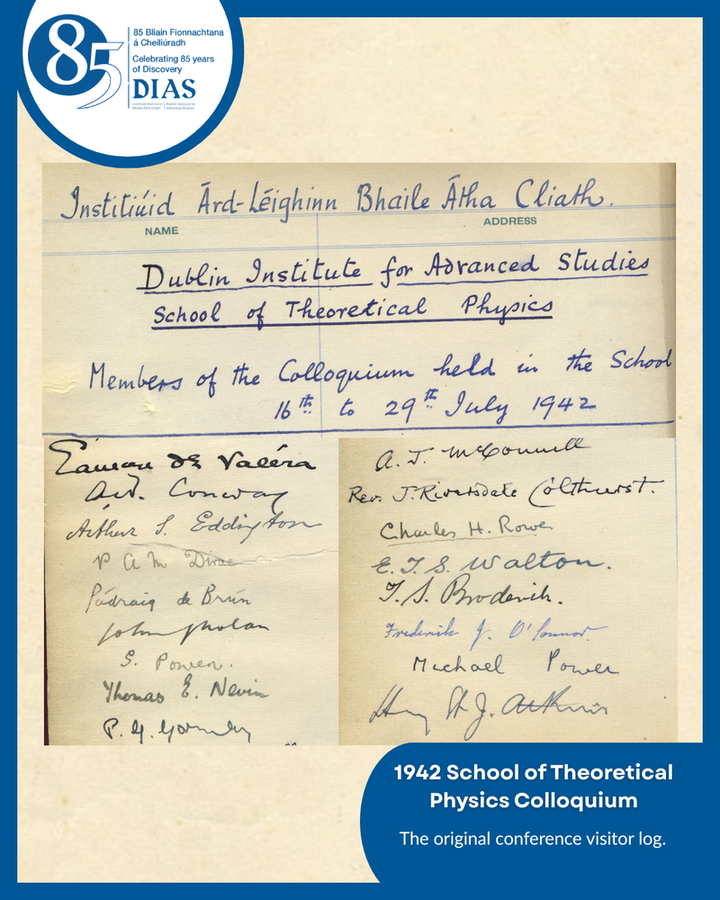 85
85 Bliain Fionnachtana
á Cheiliúradh
Celebrating 85 years
of Discovery
DIAS
Institiúid Ard-Léinn | Dublin Institute for
Bhaile Átha Cliath | Advanced Studies
Institiúid Árd-Léighinn Bhaile Átha Cliath.
NAME ADDRESS
Dublin Institute for Advanced Studies
School of Theoretical Physics
Members of the Colloquium held in the School
16th to 29th July 1942
Éamon de Valéra
A. W. Conway
Arthur S. Eddington
P A M Dirac
Pádraig de Brún
John J Nolan
S. Power.
Thomas E. Nevin
P. G. Gormley
A. J. McConnell
Rev. J. Riversdale Colthurst.
Charles H. Rowe
E. T. S. Walton.
T. S. Broderick.
Frederick J. O'Connor.
Michael Power
H. J.
1942 School of Theoretical
Physics Colloquium
The original conference visitor log.